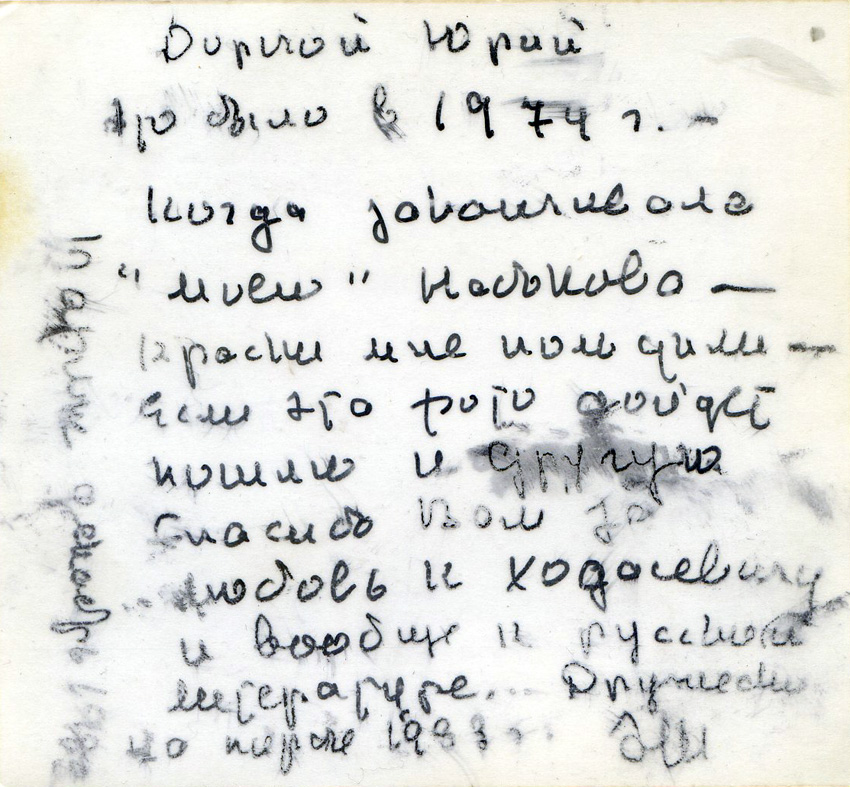 Дорогой Юрий
это было в 1974 г. —
когда заканчивала
"мысль" Набокова —
краски мне
если это фото дойдет
пошлю и другую
Спасибо Вам за
любовь к Ходасевичу
и вообще к русской
литературе... Дружески
1983
Париж